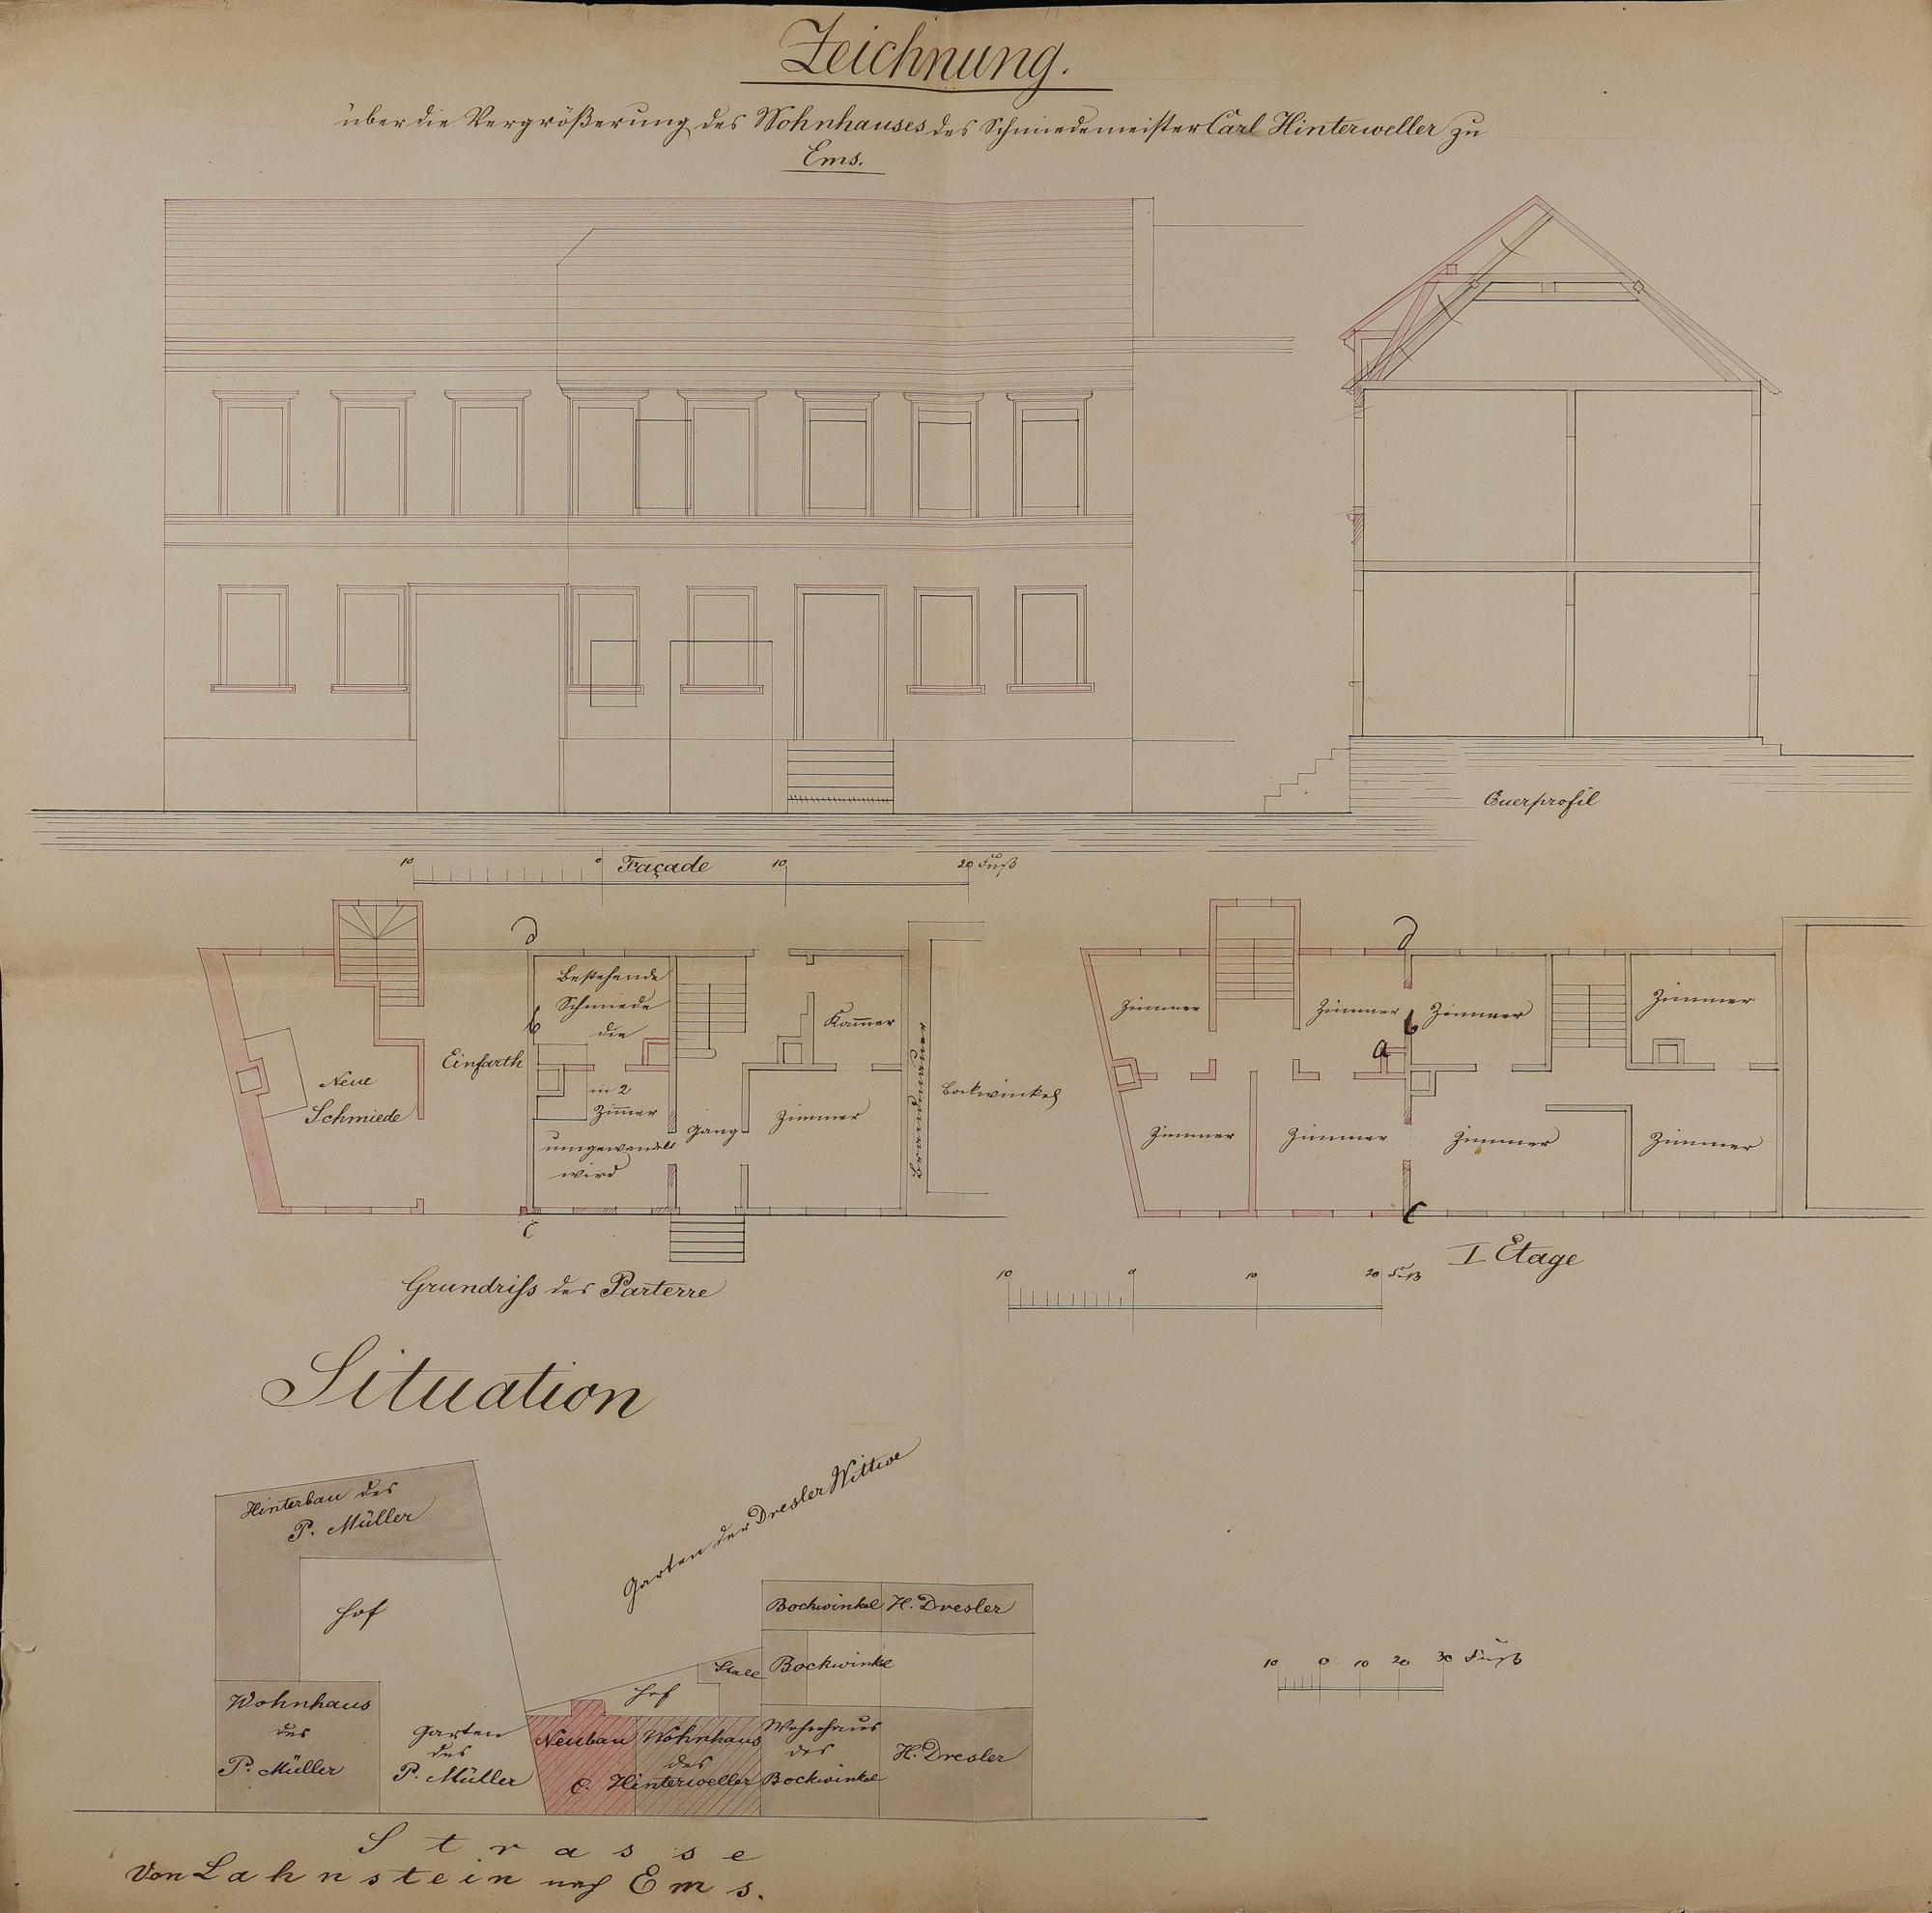 Zeichnung.
über die Vergrößerung des Wohnhauses des Schmiedemeister Carl Hinterweller zu
Ems.
Querprofil
10 0 Façade 10 20 Fuß
Bestehende
Schmiede
die
in 2
Zimmer
umgewandelt
wird
Neue
Schmiede
Einfarth
Gang
Kammer
Zimmer
Brandmauer
Bockwinkel
d
b
c
Grundriss des Parterre
Zimmer
Zimmer
Zimmer
Zimmer
Zimmer
Zimmer
Zimmer
Zimmer
d
b
a
c
I Etage
10 0 10 20 Fuß
Situation
Hinterbau des
P. Müller
Hof
Wohnhaus
des
P. Müller
Garten
des
P. Müller
Garten der Dresler Wittwe
Hof
Stall
Neubau Wohnhaus
des
C. Hinterweller
Bockwinkel
H. Dresler
Bockwinkel
Wohnhaus
des
Bockwinkel
H. Dresler
10 0 10 20 30 Fuß
Strasse
Von Lahnstein nach Ems.